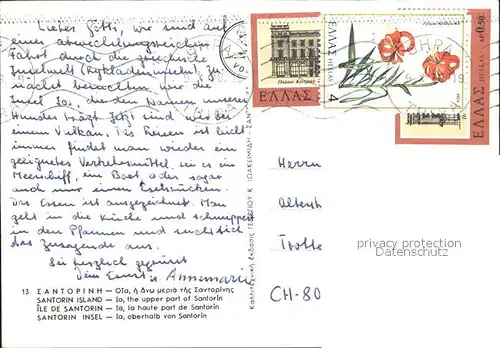 Lieber Fritz, wir sind auf
einer abwechslungsreichen
Fahrt durch die griechische
Inselwelt (Kykladeninseln). Zu-
nächst besuchten wir die
Insel Ios, die den Namen unseres
Hundes trägt. Jetzt sind wir bei
einem Vulkan. Das Reisen ist leicht
immer findet man wieder ein
geeignetes Verkehrsmittel, sei es ein
Meerschiff, ein Boot, oder sogar
auch nur einen Eselsrücken.
Das Essen ist ausgezeichnet. Man
geht in die Küche und schnuppert
in den Pfannen und sucht sich
das Zusagende aus.
Sei herzlich gegrüsst
Dein Ernst & Annemarie
13 ΣΑΝΤΟΡΙΝΗ — Οἴα, ἡ ἄνω μεριὰ τῆς Σαντορίνης
SANTORIN ISLAND — Io, the upper part of Santorin
ÎLE DE SANTORIN — Io, la haute part de Santorin
SANTORIN INSEL — Io, oberhalb von Santorin
ΕΛΛΑΣ
ΕΛΛΑΣ HELLAS
4
ΕΛΛΑΣ HELLAS
ΔΡ 0,50
ΕΛΛΑΣ
Herrn
CH-80
privacy protection
Datenschutz